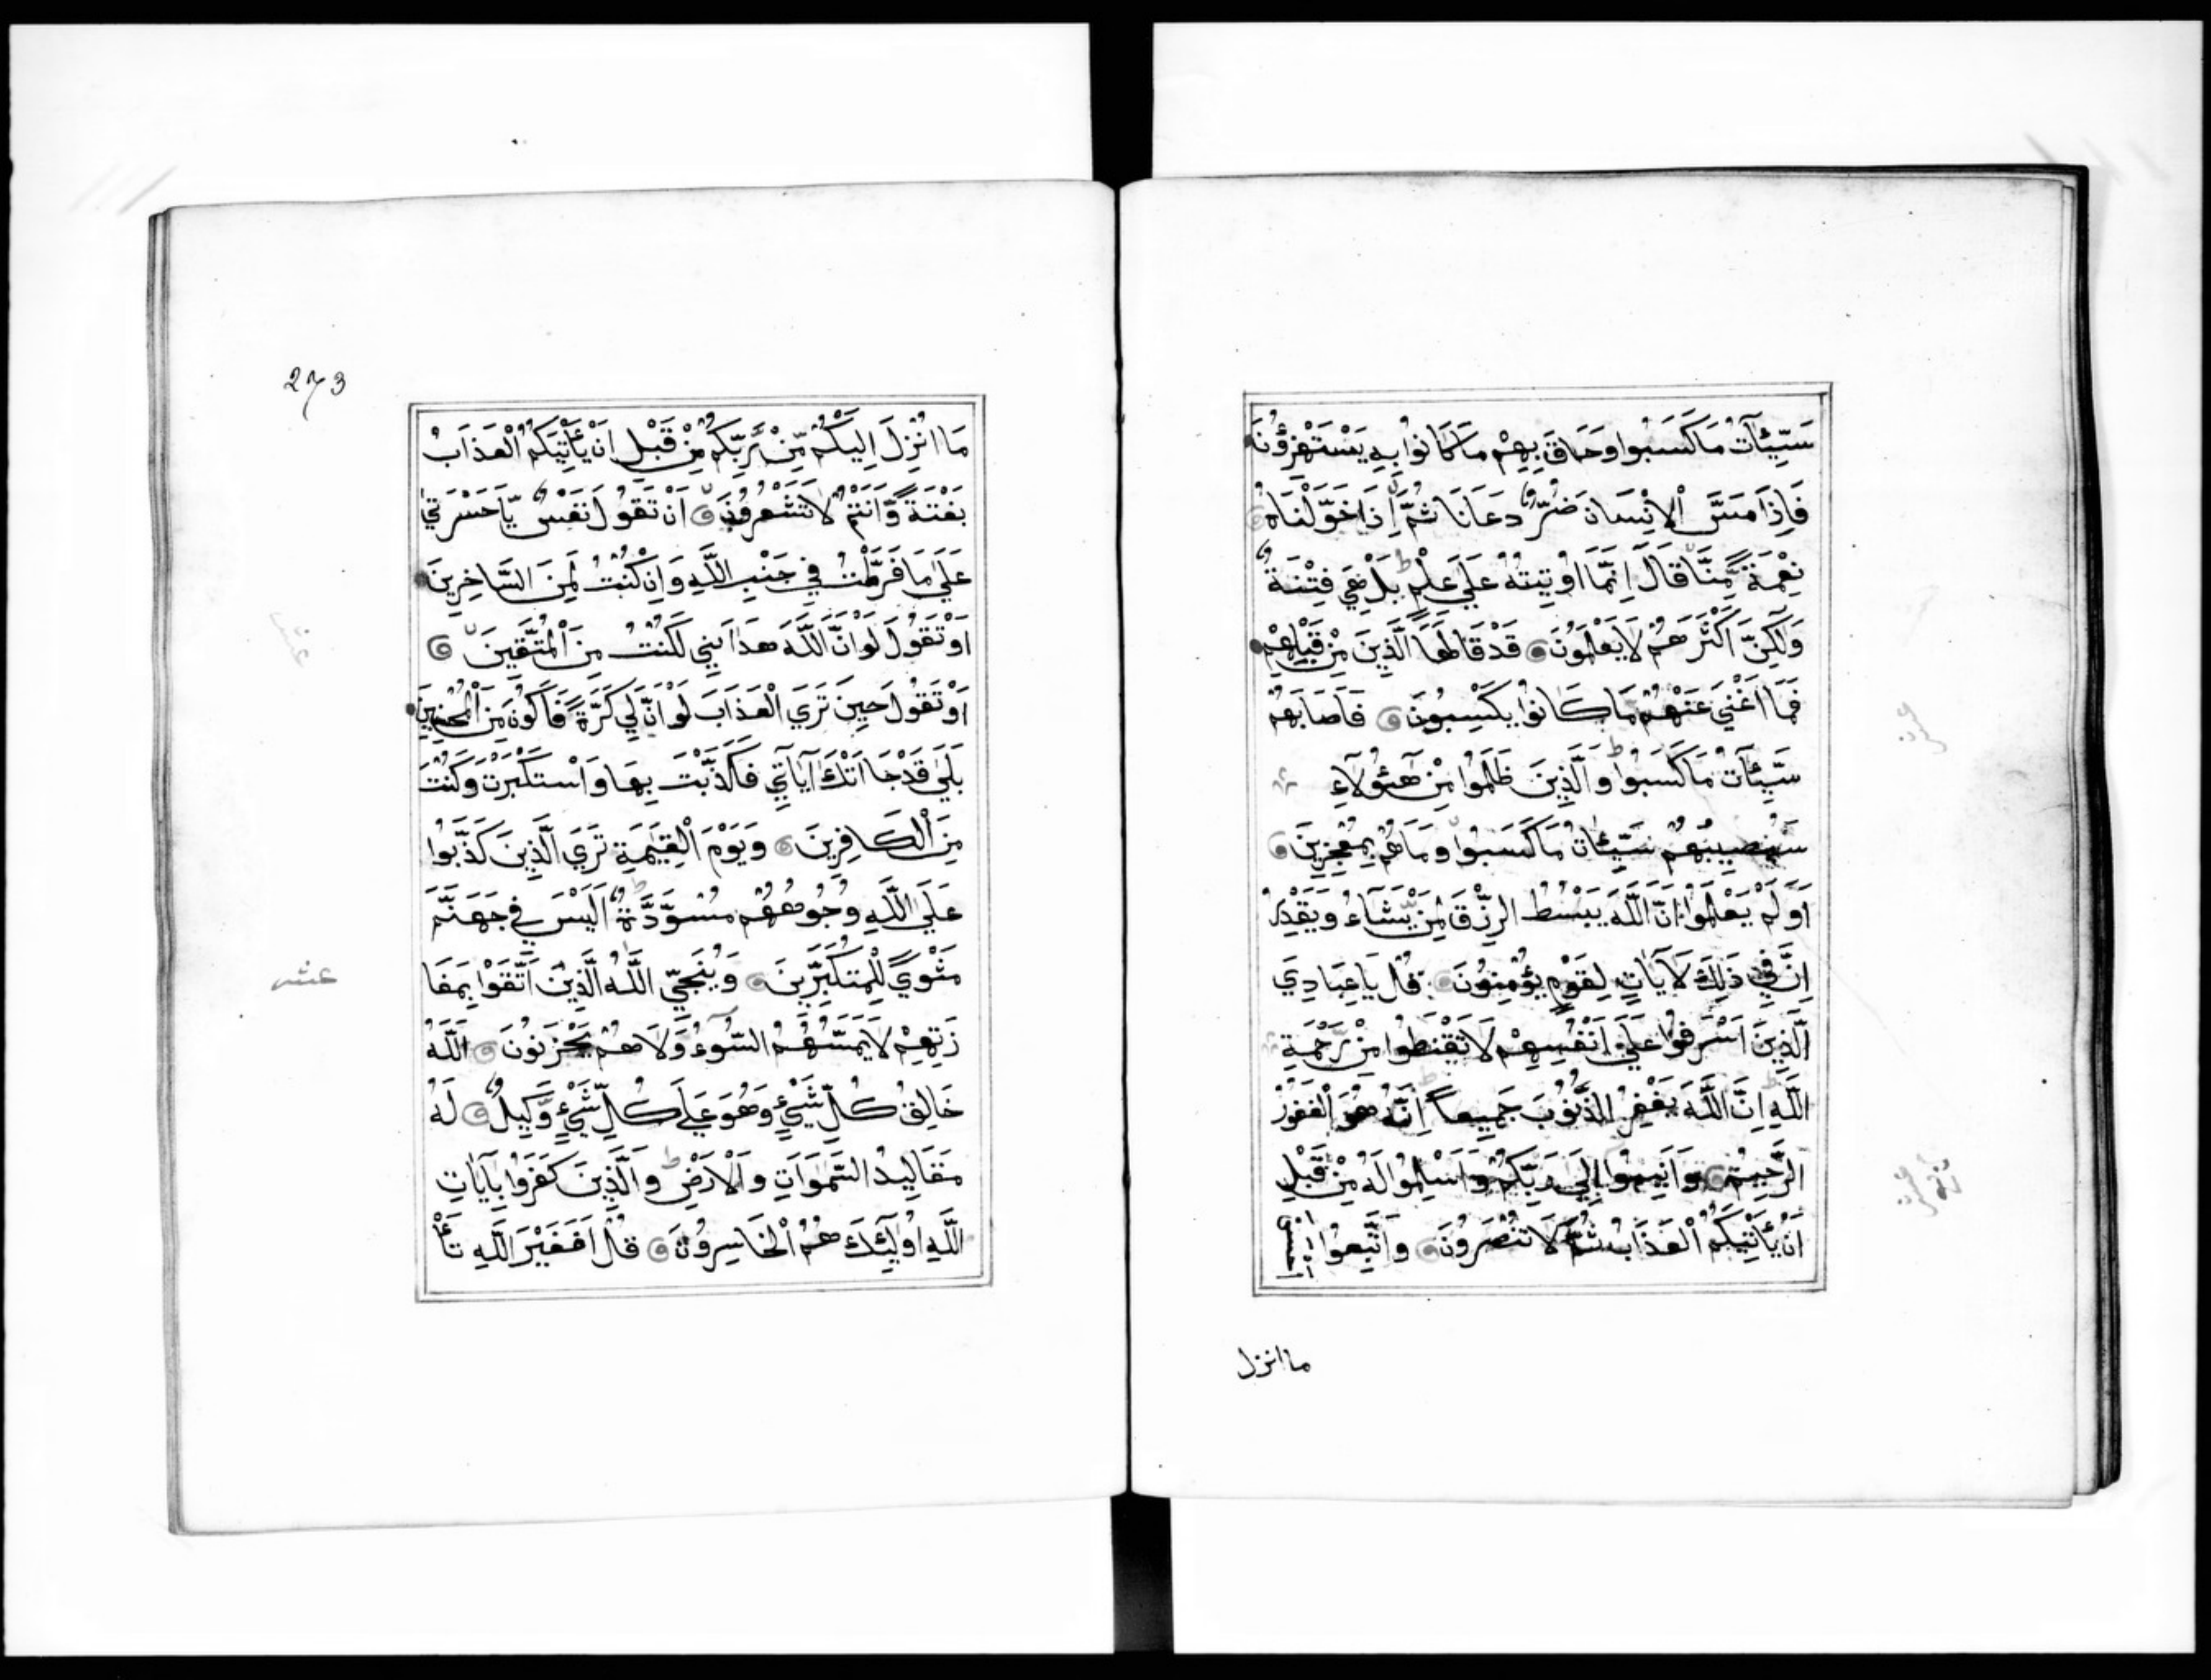 سَيِّئَاتُ مَا كَسَبُوا وَحَاقَ بِهِمْ مَا كَانُوا بِهِ يَسْتَهْزِؤُنَ
فَإِذَا مَسَّ الْاِنْسَانَ ضُرٌّ دَعَانَا ثُمَّ إِذَا خَوَّلْنَاهُ
نِعْمَةً مِّنَّا قَالَ اِنَّمَا اُوتِيتُهُ عَلَى عِلْمٍ بَلْ هِيَ فِتْنَةٌ
وَلَكِنَّ اَكْثَرَهُمْ لَا يَعْلَمُونَ قَدْ قَالَهَا الَّذِينَ مِنْ قَبْلِهِمْ
فَمَا اَغْنَى عَنْهُمْ مَا كَانُوا يَكْسِبُونَ فَاَصَابَهُمْ
سَيِّئَاتُ مَا كَسَبُوا وَالَّذِينَ ظَلَمُوا مِنْ هَؤُلَآءِ
سَيُصِيبُهُمْ سَيِّئَاتُ مَا كَسَبُوا وَمَا هُمْ بِمُعْجِزِينَ
اَوَلَمْ يَعْلَمُوا اَنَّ اللَّهَ يَبْسُطُ الرِّزْقَ لِمَنْ يَّشَآءُ وَيَقْدِرُ
اِنَّ فِي ذَلِكَ لَآيَاتٍ لِقَوْمٍ يُؤْمِنُونَ قُلْ يَا عِبَادِيَ
الَّذِينَ اَسْرَفُوا عَلَى اَنْفُسِهِمْ لَا تَقْنَطُوا مِنْ رَّحْمَةِ
اللَّهِ اِنَّ اللَّهَ يَغْفِرُ الذُّنُوبَ جَمِيعاً اِنَّهُ هُوَ الْغَفُورُ
الرَّحِيمُ وَاَنِيبُوا اِلَى رَبِّكُمْ وَاَسْلِمُوا لَهُ مِنْ قَبْلِ
اَنْ يَأْتِيَكُمُ الْعَذَابُ ثُمَّ لَا تُنْصَرُونَ وَاتَّبِعُوا
ما انزل
273
مَا اُنْزِلَ اِلَيْكُمْ مِّنْ رَّبِّكُمْ مِنْ قَبْلِ اَنْ يَأْتِيَكُمُ الْعَذَابُ
بَغْتَةً وَّاَنْتُمْ لَا تَشْعُرُونَ اَنْ تَقُولَ نَفْسٌ يَّا حَسْرَتَي
عَلَى مَا فَرَّطْتُ فِي جَنْبِ اللَّهِ وَاِنْ كُنْتُ لَمِنَ السَّاخِرِينَ
اَوْ تَقُولَ لَوْ اَنَّ اللَّهَ هَدَانِي لَكُنْتُ مِنَ الْمُتَّقِينَ
اَوْ تَقُولَ حِينَ تَرَي الْعَذَابَ لَوْ اَنَّ لِي كَرَّةً فَاَكُونَ مِنَ الْمُحْسِنِينَ
بَلَي قَدْ جَآءَتْكَ آيَاتِي فَكَذَّبْتَ بِهَا وَاسْتَكْبَرْتَ وَكُنْتَ
مِنَ الْكَافِرِينَ وَيَوْمَ الْقِيَمَةِ تَرَي الَّذِينَ كَذَبُوا
عَلَى اللَّهِ وُجُوهُهُمْ مُسْوَدَّةٌ اَلَيْسَ فِي جَهَنَّمَ
مَثْوًي لِلْمُتَكَبِّرِينَ وَيُنَجِّي اللَّهُ الَّذِينَ اتَّقَوْا بِمَفَا
زَتِهِمْ لَا يَمَسُّهُمُ السُّوءُ وَلَا هُمْ يَحْزَنُونَ اَللَّهُ
خَالِقُ كُلِّ شَيْءٍ وَهُوَ عَلَى كُلِّ شَيْءٍ وَّكِيلٌ لَهُ
مَقَالِيدُ السَّمَوَاتِ وَالْاَرْضِ وَالَّذِينَ كَفَرُوا بِآيَاتِ
اللَّهِ اُولَئِكَ هُمُ الْخَاسِرُونَ قُلْ اَفَغَيْرَ اللَّهِ تَأْ
عشر